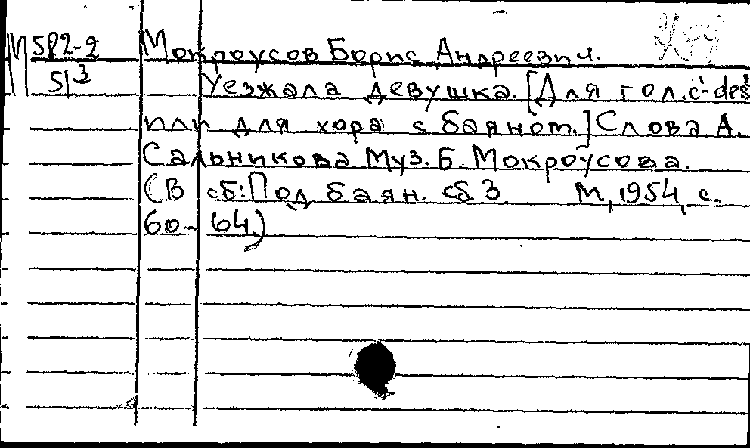 М 582-2
51³
Мокроусов Борис Андреевич.
Уезжала девушка. [Для гол. c¹-des²
или для хора с баяном.] Слова А.
Сальникова Муз. Б. Мокроусова.
(В сб: Под баян. Сб 3. М, 1954, с.
60-64.)